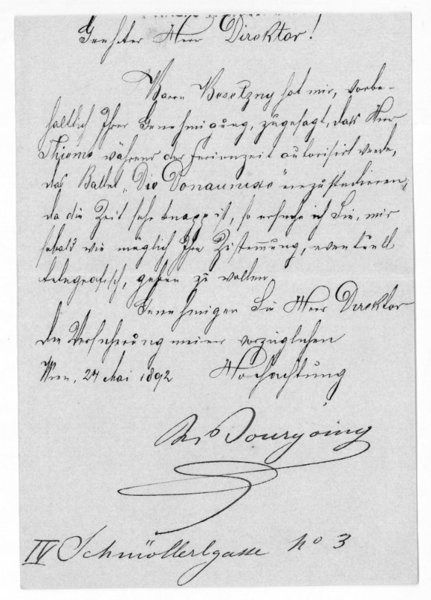 Geehrter Herr Direktor!
Baron Bezecny hat mir, vorbe-
haltlich Ihrer Genehmigung, zugesagt, daß Herr
während der Ferienzeit autorisirt werde,
das Ballet „Die Donaunixe“ einzustudieren,
da die Zeit sehr knapp ist, so ersuche ich Sie, mir
sobald wie möglich Ihre Zustimmung, eventuell
telegrafisch, geben zu wollen.
Genehmigen Sie Herr Direktor
die Versicherung meiner vorzüglichen
Wien, 24 Mai 1892 Hochachtung
Bourgoing
IV Schmöllerlgasse No 3